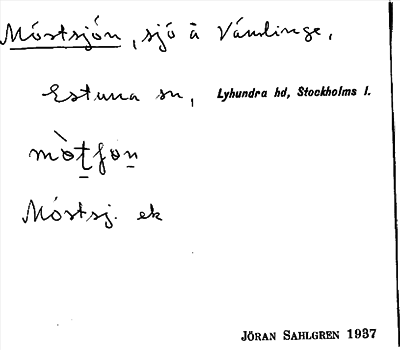 Móstsjón, sjö å Vämlinge,
Estuna sn, Lyhundra hd, Stockholms l.
Móstsj. ek
JÖRAN SAHLGREN 1937